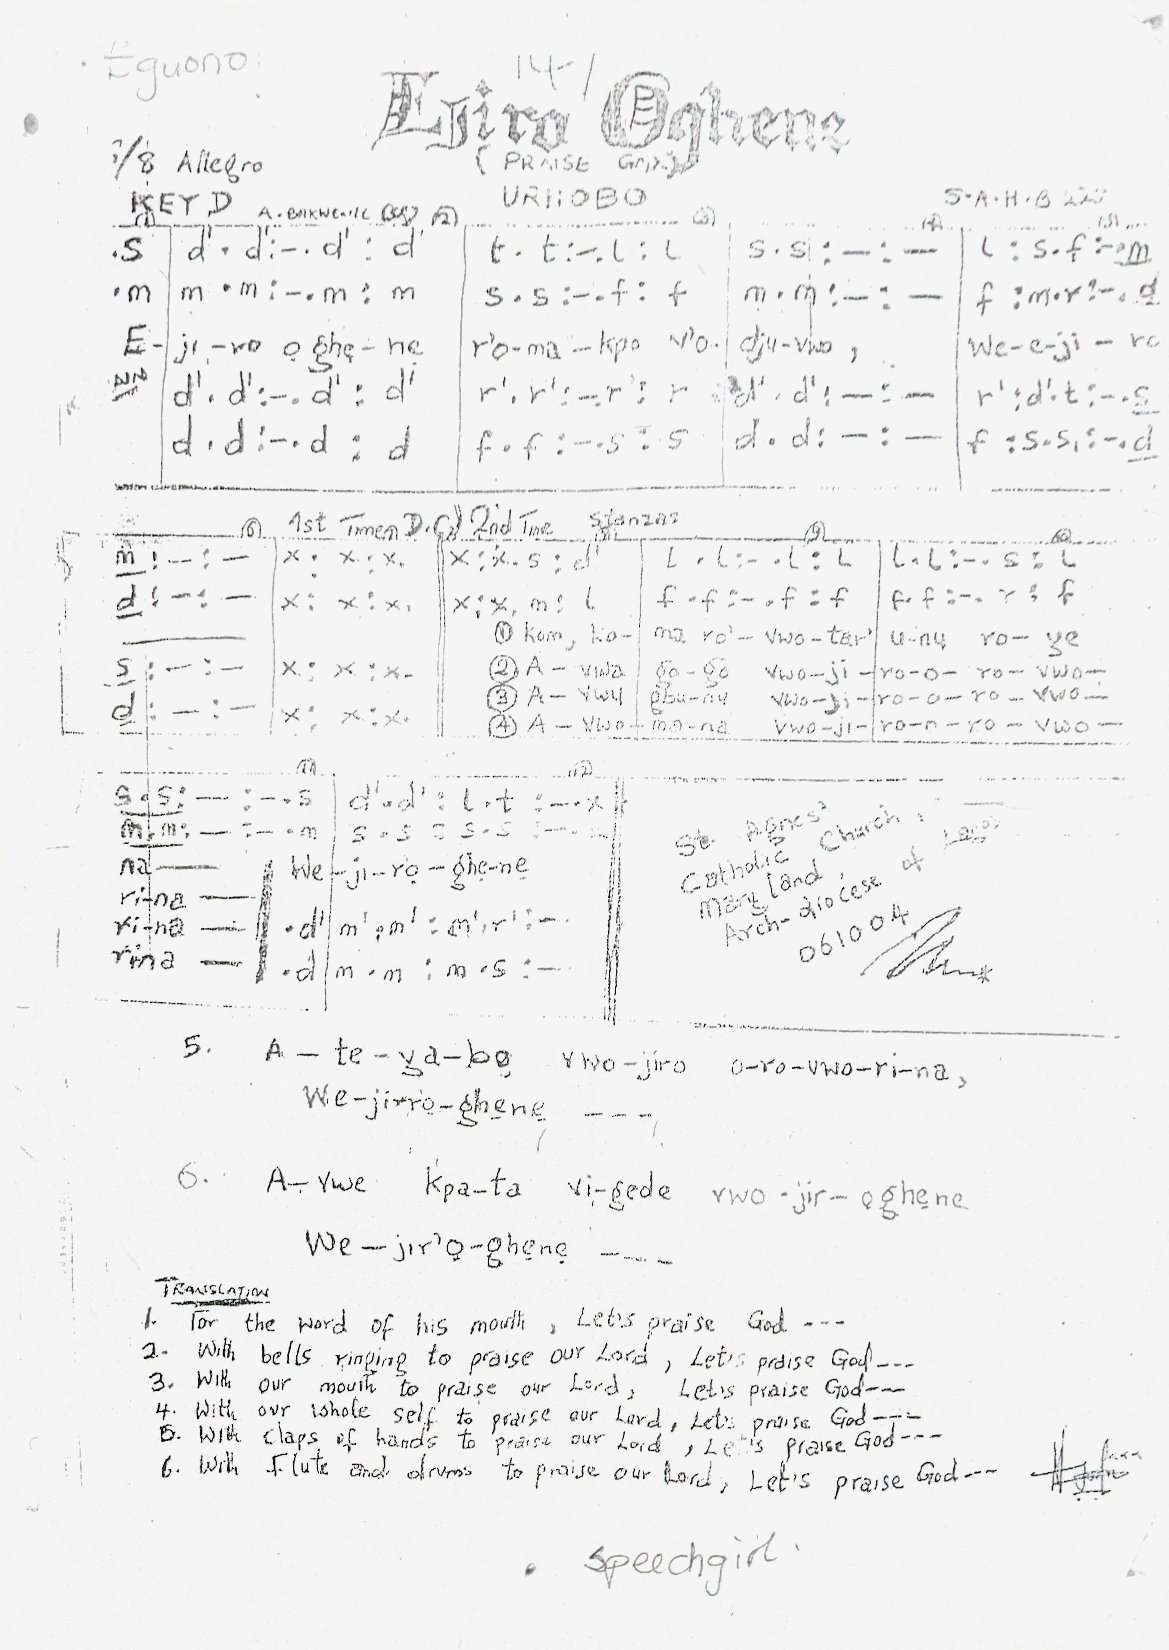 Eguono
14
Ejiro Oghene
/8 Allegro
(PRAISE God)
KEY D
URHOBO
S.A.H.B
(1) (2) (3) (4) (5)
.S | d'. d':-. d' : d' | t. t:-.l : l | s. s : — : — | l : s.f :-.m
.m | m .m :-.m : m | s.s :-.f : f | m.m : — : — | f : m.r :-.d
E- | ji-ro ọ ghẹ-nẹ | r'o-ma-kpo v'o- | dju-vwo, | We-e-ji-ro
d'. d':-. d' : d' | r'. r':-.r' : r | d'. d' : — : — | r' : d'.t :-.s
d . d :-.d : d | f.f :-.s : s | d. d : — : — | f : s.s, :-.d
(6) 1st Time D.C. 2nd Time Stanzas (9)
m : — : — | x : x : x. | x : x. s : d' | l . l :-.l : l | l. l :-. s : l
d : — : — | x : x : x. | x : x. m : l | f .f :-.f : f | f.f :-. r : f
① kom, ko- ma ro'-vwo-tar' u-nu ro-ye
s : — : — | x : x : x. ② A-vwa go-go vwo-ji-ro-o-ro-vwo—
③ A-vwu gbu-nu vwo-ji-ro-o-ro-vwo—
d : — : — | x : x : x. ④ A-vwo-ma-na vwo-ji-ro-o-ro-vwo—
(11) (12)
s.s : — :-.s | d'.d' : l.t :-.x
m.m : — :-.m | s.s : s.s :—.
na— We-ji-rọ-ghẹ-nẹ
ri-na —
ri-na — .d' | m'.m' : m'.r' :-.
rina — .d | m .m : m .s :-
St. Agnes'
Catholic Church,
Maryland,
Arch-diocese of Lagos
061004
5. A-te-ya-bọ vwo-jiro o-ro-vwo-ri-na,
We-ji-rọ-ghẹnẹ ----
6. A-vwe kpa-ta vi-gede vwo-jir-ọghẹnẹ
We-jir'ọ-ghẹnẹ ----
TRANSLATION
1. For the word of his mouth, Let's praise God ---
2. With bells ringing to praise our Lord, Let's praise God---
3. With our mouth to praise our Lord, Let's praise God---
4. With our whole self to praise our Lord, Let's praise God---
5. With claps of hands to praise our Lord, Let's praise God---
6. With flute and drums to praise our Lord, Let's praise God---
speechgirl.